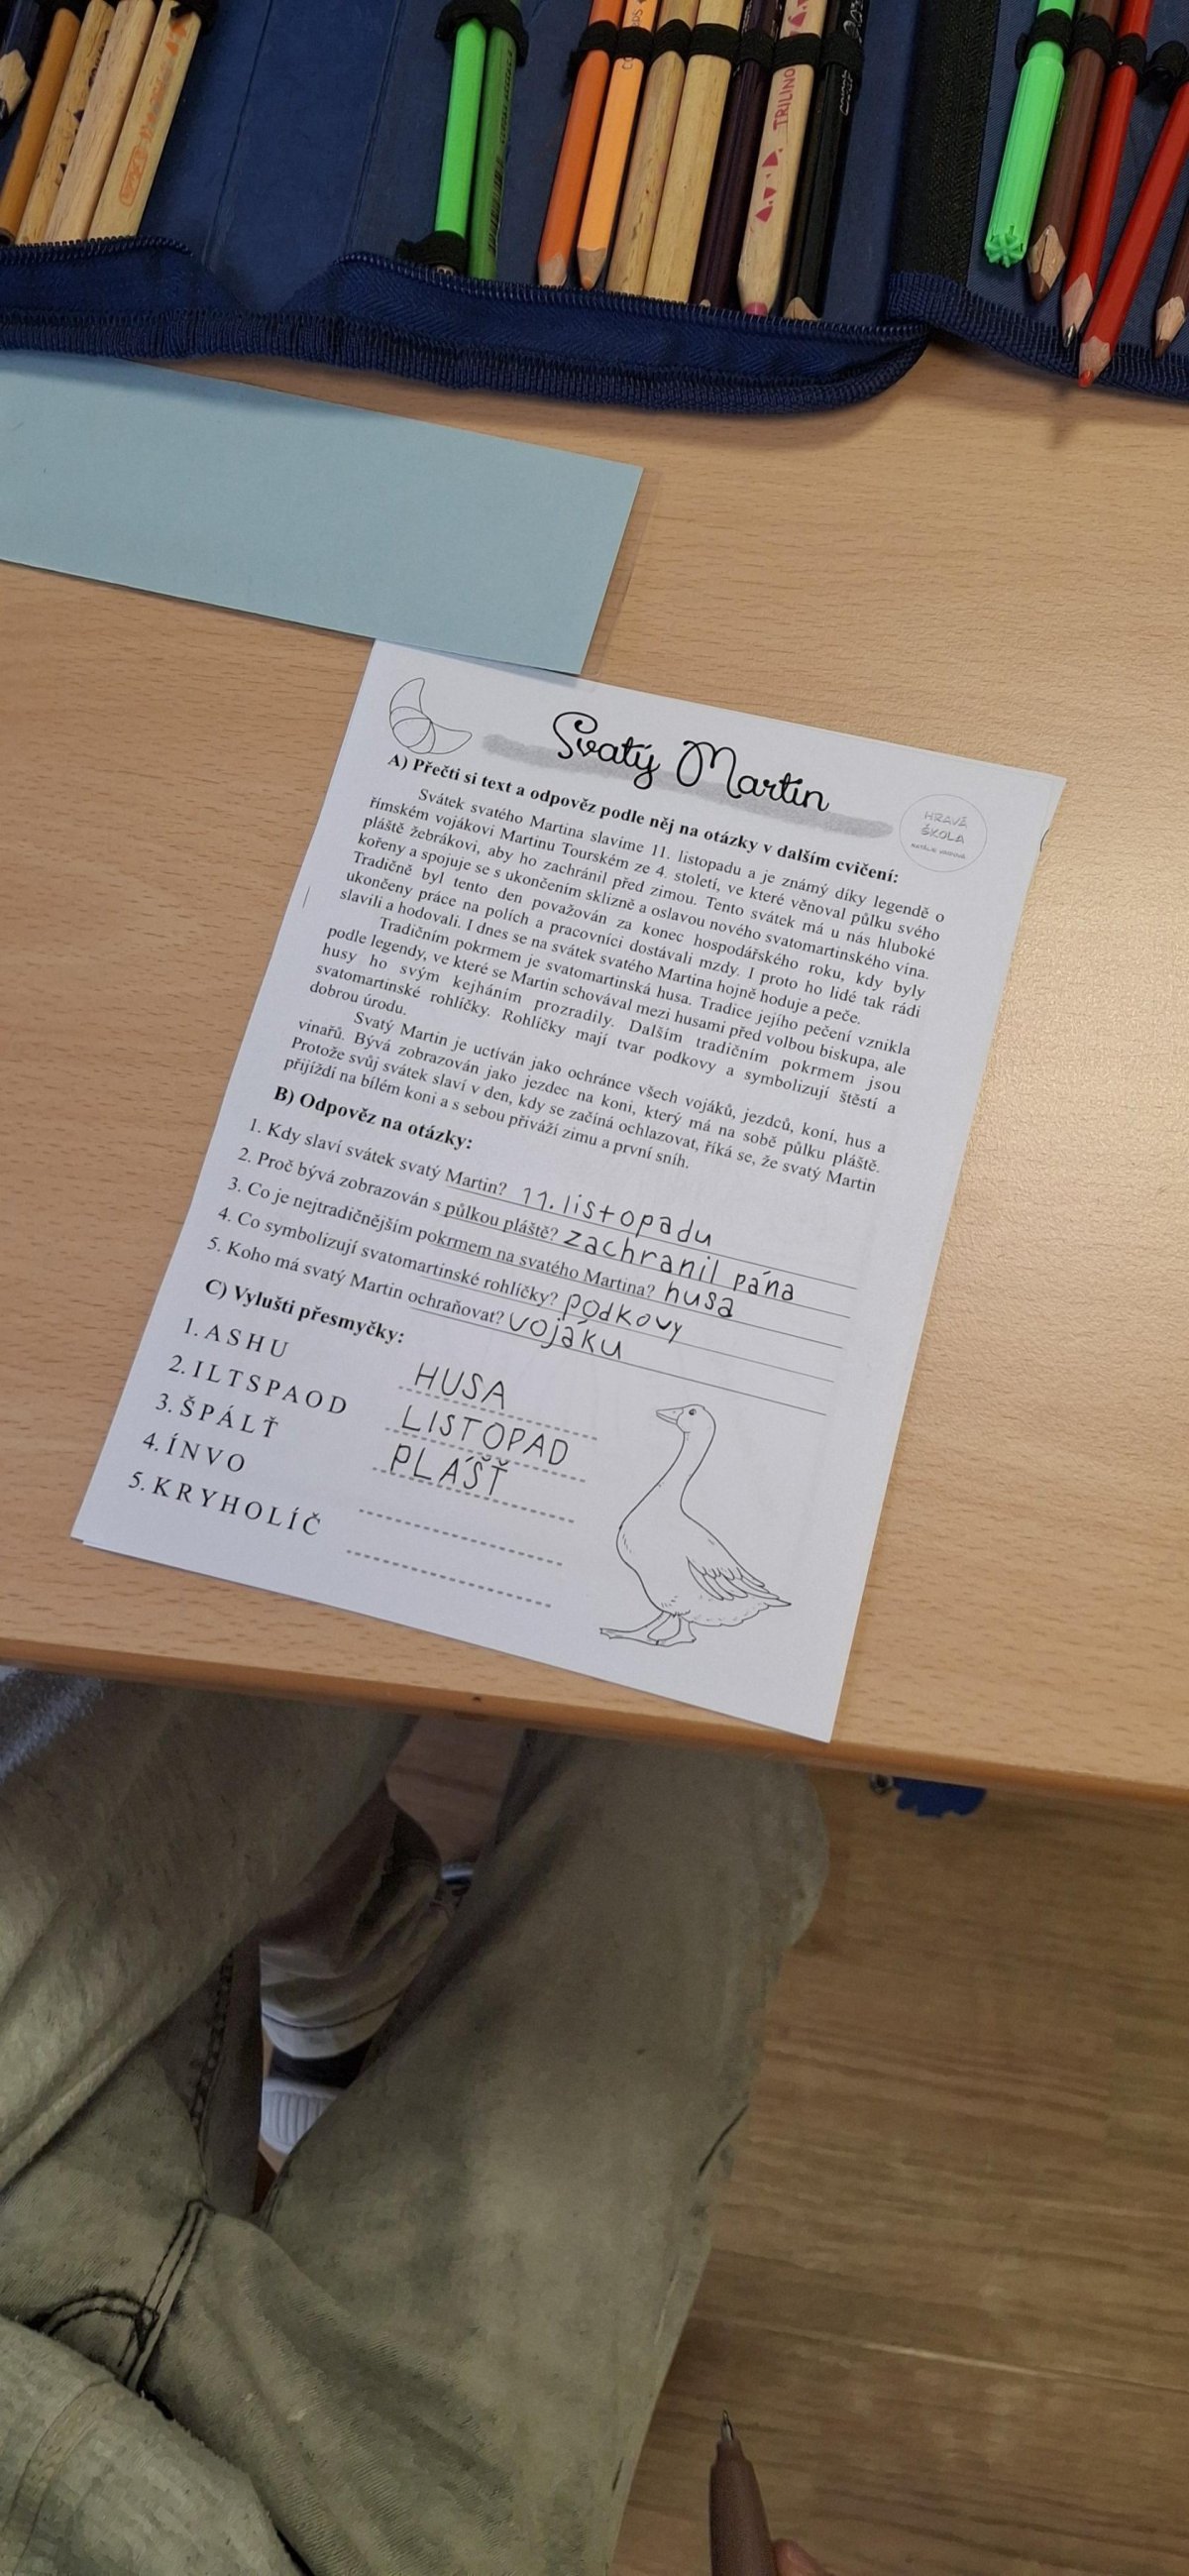 Svatý Martin
HRAVÁ
ŠKOLA
A) Přečti si text a odpověz podle něj na otázky v dalším cvičení:
Svátek svatého Martina slavíme 11. listopadu a je známý díky legendě o
římském vojákovi Martinu Tourském ze 4. století, ve které věnoval půlku svého
pláště žebrákovi, aby ho zachránil před zimou. Tento svátek má u nás hluboké
kořeny a spojuje se s ukončením sklizně a oslavou nového svatomartinského vína.
Tradičně byl tento den považován za konec hospodářského roku, kdy byly
ukončeny práce na polích a pracovníci dostávali mzdy. I proto ho lidé tak rádi
slavili a hodovali. I dnes se na svátek svatého Martina hojně hoduje a peče.
Tradičním pokrmem je svatomartinská husa. Tradice jejího pečení vznikla
podle legendy, ve které se Martin schovával mezi husami před volbou biskupa, ale
husy ho svým kejháním prozradily. Dalším tradičním pokrmem jsou
svatomartinské rohlíčky. Rohlíčky mají tvar podkovy a symbolizují štěstí a
dobrou úrodu.
Svatý Martin je uctíván jako ochránce všech vojáků, jezdců, koní, hus a
vinařů. Bývá zobrazován jako jezdec na koni, který má na sobě půlku pláště.
Protože svůj svátek slaví v den, kdy se začíná ochlazovat, říká se, že svatý Martin
přijíždí na bílém koni a s sebou přiváží zimu a první sníh.
B) Odpověz na otázky:
1. Kdy slaví svátek svatý Martin? 11. listopadu
2. Proč bývá zobrazován s půlkou pláště? zachranil pána
3. Co je nejtradičnějším pokrmem na svatého Martina? husa
4. Co symbolizují svatomartinské rohlíčky? podkovy
5. Koho má svatý Martin ochraňovat? vojáku
C) Vylušti přesmyčky:
1. ASHU HUSA
2. ILTSPAOD LISTOPAD
3. ŠPÁLŤ PLÁŠŤ
4. ÍNVO
5. KRYHOLÍČ
TRILINO